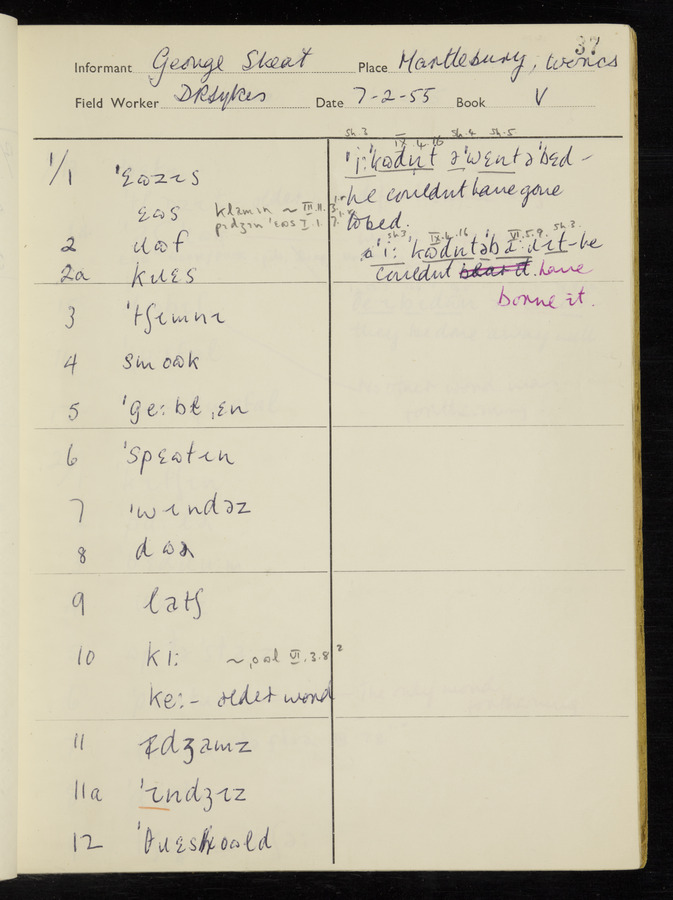 37
Informant George Skeat Place Martlebury, Worcs
Field Worker DRSykes Date 7-2-55 Book V
1/1 'ɛʊzɪs
ɛʊs
klamɪn ~ III.11.3.
2 ɹʊf
2a kɹɛs
3 'tʃɪmnɪ
4 smoʊk
5 'ge:bɫˌɛn
6 'spɛʊtɪn
7 'wɪndəz
8 dʊə
9 latʃ
10 ki: ~ VI.3.8
ke: - older word
11 dʒamz
11a 'ɪndʒɪz
12 'θɹɛʃoʊld
sh.3 IX.4.16 sh.4 sh.5
'i: 'kʊdnt ə 'wɛnt ə 'bɛd -
he couldn't have gone
to bed.
sh.3 IX.4.16 VI.5.9 sh.3
i: 'kʊdnt əb ɪt - he
couldn't have
borne it.